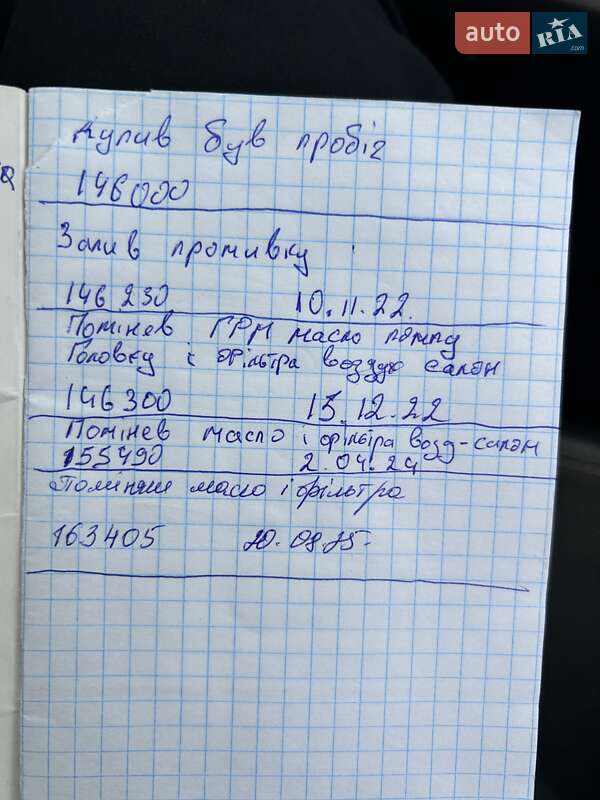 auto RIA.com
Купив був пробіг
146000
Залив промивку
146 230 10.11.22.
Помінев ГРМ масло помпу
Головку і фільтра воздух салон
146300 15.12.22
Помінев масло і фільтра возд-салон
155490 2.04.24
Помінял масло і фільтра
163405 20.08.25.